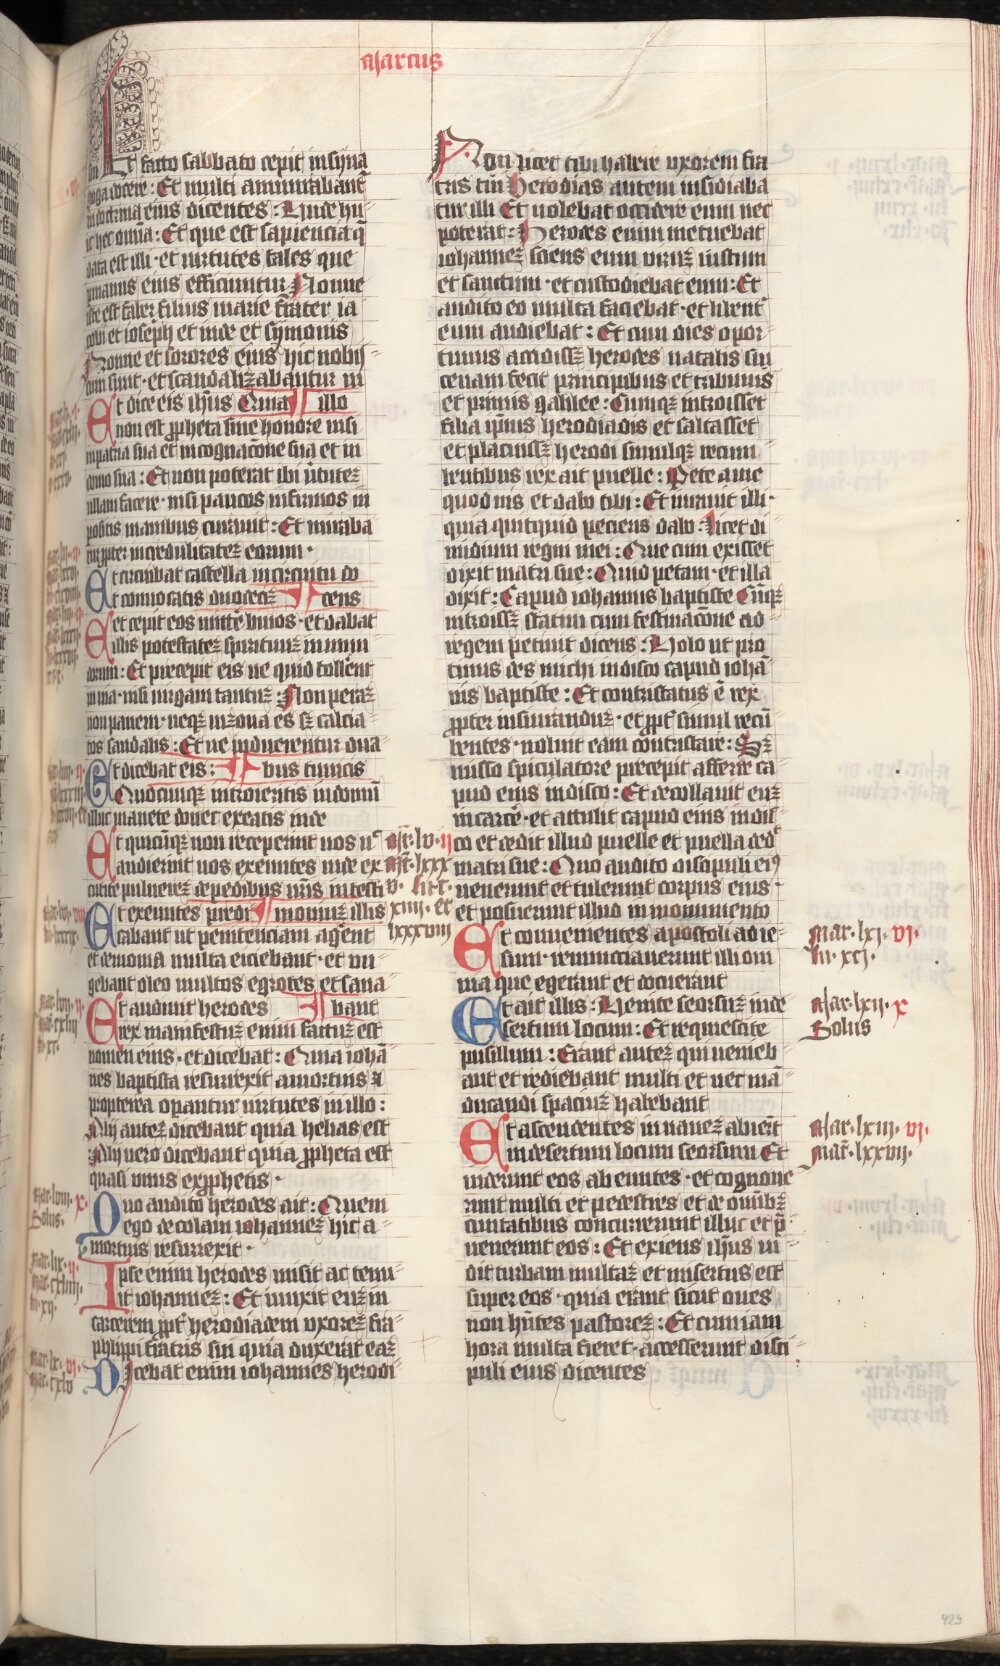 Marcus
Et facto sabbato cepit in syna
goga docere : Et multi ammirabant̄
in doctrina eius dicentes : Unde hu
ic hec om̄ia : Et que est sapiencia q̄
data est illi · et uirtutes tales que
p manus eius efficiuntur Nonne
iste est faber filius marie frater ia
cobi et ioseph et iude et symonis
Nonne et sorores eius hic nobis
cum sunt · et scandalizabantur in
Et dicebat eis ih̄us Quia illo
non est ꝓpheta sine honore nisi
in patria sua et in cognac̄one sua et in
domo sua : Et non poterat ibi ūtutez
ullam facere · nisi paucos infirmos in
positis manibus curauit : Et miraba
tur ꝓpter incredulitatez eorum ·
Et circuibat castella in circuitu do
Et conuocatis duodecz cens
et cepit eos mitte binos · et dabat
illis potestatez spirituuz inmun
dorum : Et precepit eis ne quid tollent
in uia · nisi uirgam tantuz : Non peraz
non panem · neqz in zona es sz calcia
tos sandalis : Et ne induerentur dua
Et dicebat eis : bus tunicis
Quocumqz introieritis in domū
illuc manete donec exeatis inde
Et quicūqz non receperint uos nec
audierint uos exeuntes inde ex
cutite puluerez de pedibus ur̄is in testi
Et exeuntes predi moniuz illis
cabant ut penitenciam agent
et demonia multa eiciebant · et un
gebant oleo multos egrotes et sana
Et audiuit herodes bant
rex manifestuz enim factuz est
nomen eius · et dicebat : Quia iohā
nes baptista resurrexit a mortuis et
propterea operantur uirtutes in illo :
Alij autez dicebant quia helias est
Alij uero dicebant quia ꝓpheta est
quasi unus ex ꝓphetis ·
Quo audito herodes ait : Quem
ego decolaui iohannez hic a
mortuis resurrexit ·
Ipse enim herodes misit ac tenu
it iohannez : Et uinxit euz in
carcerem ꝓpt herodiadem uxorez fra
philippi fratris sui quia duxerat eaz
Dicebat enim iohannes herodi
Mar · lv · ij
Mat · lxxx
v · luc ·
xiiij · et
lxxxviij
Non licet tibi habere uxorem fra
tris tui Herodias autem insidiaba
tur illi Et uolebat occidere eum nec
poterat : Herodes enim metuebat
iohannez sciens eum uiruz iustum
et sanctum · et custodiebat eum : Et
audito eo multa faciebat · et libent
eum audiebat : Et cum dies opor
tunus accidissz herodes natalis sui
cenam fecit principibus et tribunis
et primis galilee : Cumqz introisset
filia ip̄ius herodiadis et saltasset
et placuissz herodi simulqz recum
bentibus rex ait puelle : Pete a me
quod uis et dabo tibi : Et iurauit illi ·
quia quitquid pecieris dabo : licet di
midium regni mei : Que cum exisset
dixit matri sue : Quid petam · et illa
dixit : Caput iohannis baptiste Cūqz
introissz statim cum festinac̄one ad
regem petiuit dicens : Uolo ut pro
tinus des michi in disco capud iohā
nis baptiste : Et contristatus ē rex
ꝓpter iusiuranduz · et ꝓpt simul recū
bentes · noluit eam contristare : Sz
misso spiculatore precepit afferre ca
pud eius in disco : Et decollauit euz
in carcē · et attulit capud eius in dis
co et dedit illud puelle et puella ded
matri sue : Quo audito discipuli ei9
uenerunt et tulerunt corpus eius ·
et posuerunt illud in monumento
Et conuenientes apostoli ad ie
sum · renunciauerunt illi om
nia que egerant et docuerant
Et ait illis : Uenite seorsuz in de
sertum locum : Et requiescite
pusillum : Erant autez qui uenieb
ant et rediebant multi et nec mā
ducandi spaciuz habebant
Et ascendentes in nauez abiert
in desertum locum seorsum Et
uiderunt eos abeuntes · et cognoue
runt multi et pedestres et de om̄ibz
ciuitatibus concurrerunt illuc et p̄
uenerunt eos : Et exiens ih̄us ui
dit turbam multaz et misertus est
super eos · quia erant sicut oues
non hn̄tes pastorez : Et cum iam
hora multa fieret · accesserunt disci
puli eius dicentes
Mar · lxj · vj ·
lu · xcj ·
Mar · lxij · x
Solus
Mar · lxiij · vj ·
Mat · lxxvij ·
429